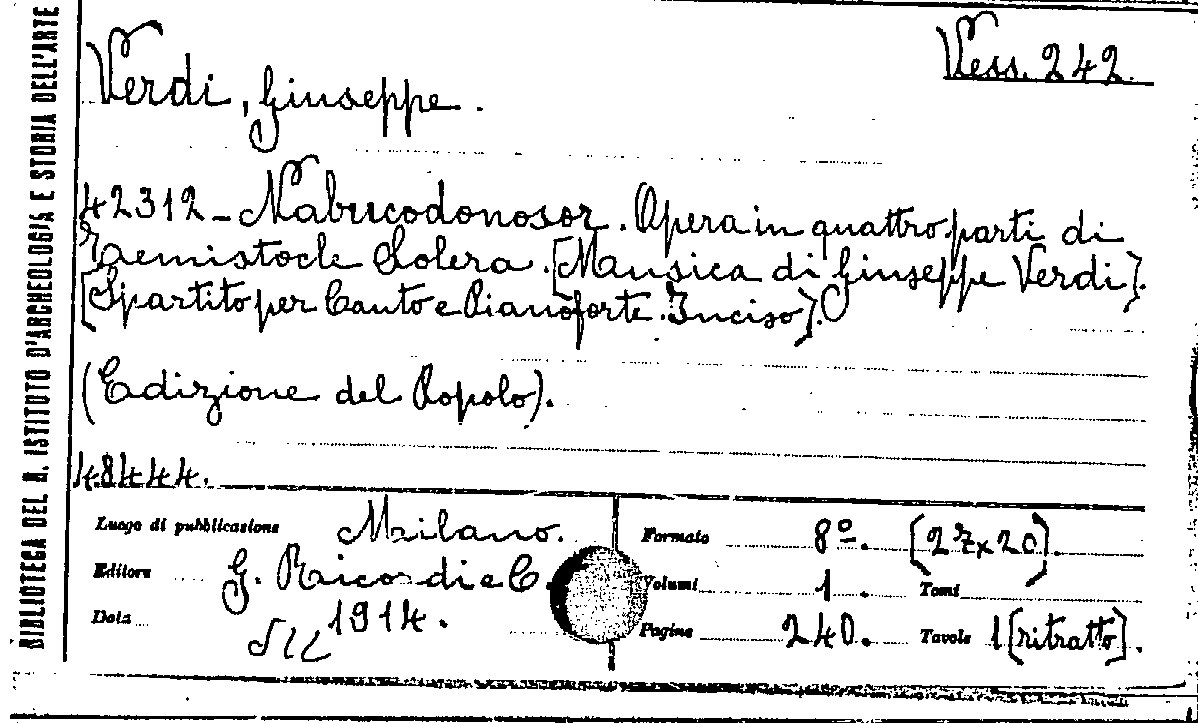 BIBLIOTECA DEL R. ISTITUTO D'ARCHEOLOGIA E STORIA DELL'ARTE
Vess. 242.
Verdi, Giuseppe.
42312 - Nabucodonosor. Opera in quattro parti di
Temistocle Solera. [Musica di Giuseppe Verdi].
[Spartito per Canto e Pianoforte. Inciso].
(Edizione del Popolo).
48444.
Luogo di pubblicazione Milano. Formato 8º. [27x20].
Editore G. Ricordi e C. Volumi 1. Tomi
Data 1914. Pagine 240. Tavole 1 [ritratto].